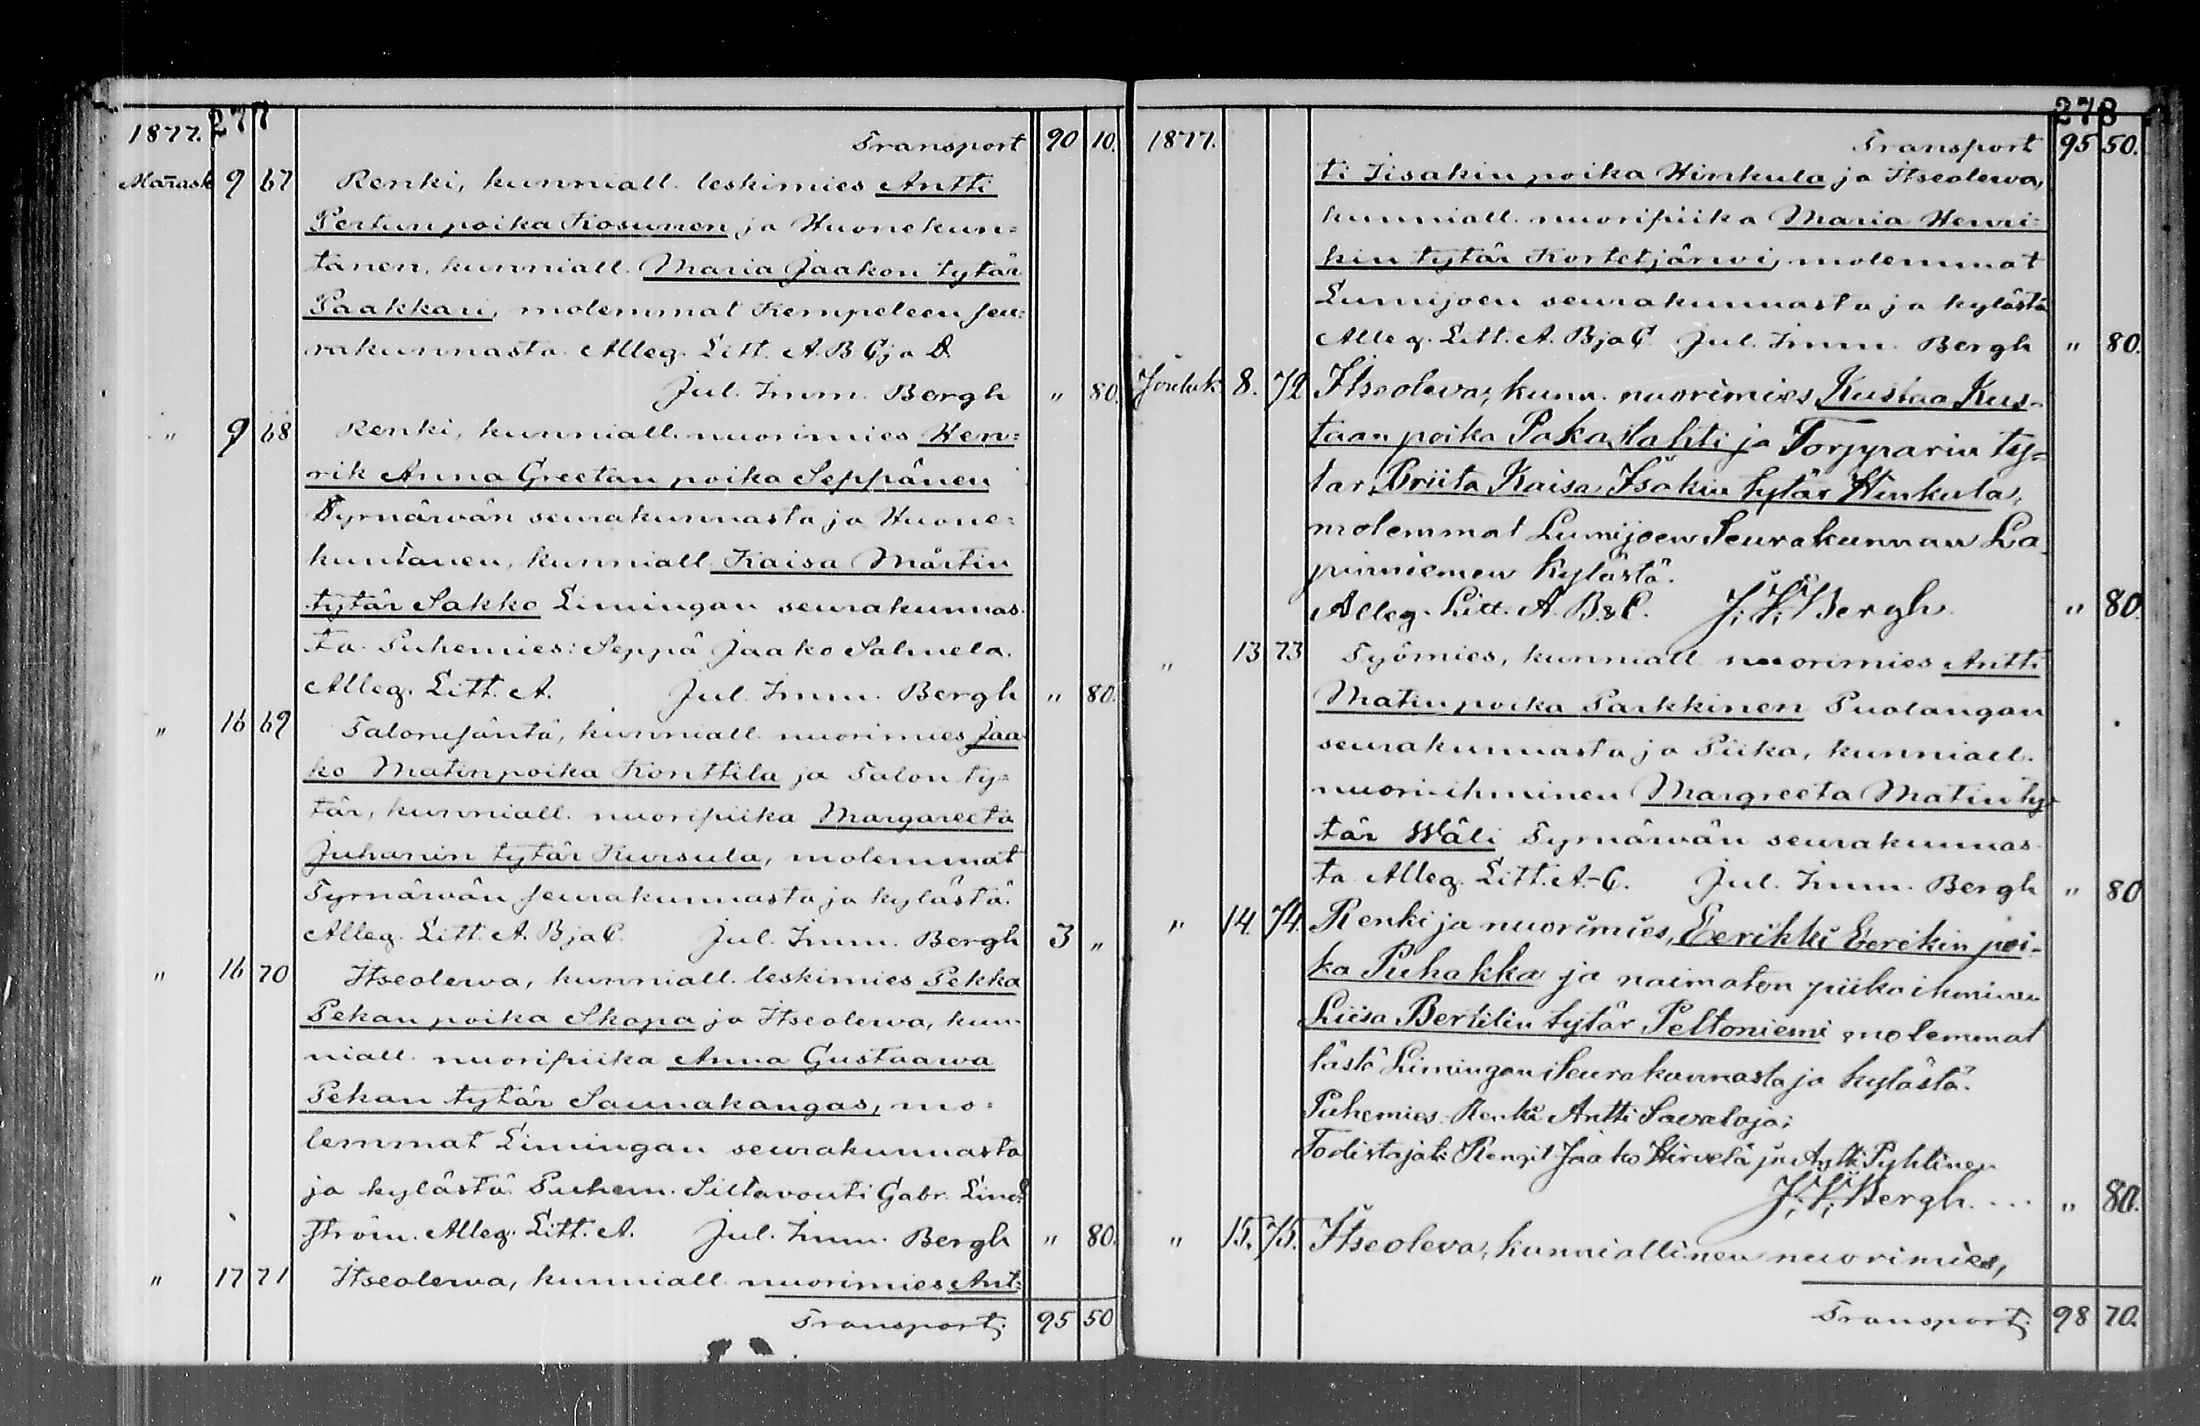 277
1877. Transport 90 10.
Marrask 9 67 Renki, kunniall. leskimies Antti
Pertun poika Kosunen ja Huonekun=
tanen, kunniall. Maria Jaakon tytär
Paakkari, molemmat Kempeleen seu=
rakunnasta. Alleg. Litt. A. B C ja D.
Jul. Imm. Bergh " 80.
" 9 68 Renki, kunniall. nuorimies Hen=
rik Anna Greetan poika Seppänen
Tyrnäwän seurakunnasta ja Huone=
kuntanen, kunniall. Kaisa Martin
tytär Sakko Limingan seurakunnas=
ta. Puhemies: Seppä Jaako Salmela.
Alleg. Litt. A. Jul. Imm. Bergh " 80.
" 16 69 Talonisäntä, kunniall. nuorimies Jaa=
ko Matinpoika Konttila ja Talon ty=
tär, kunniall. nuoripiika Margareeta
Juhanin tytär Kursula, molemmat
Tyrnäwän seurakunnasta ja kylästä.
Alleg. Litt. A. B ja C. Jul. Imm. Bergh 3 "
" 16 70 Itseolewa, kunniall. leskimies Pekka
Pekan poika Skopa ja Itseolewa, kun=
niall. nuoripiika Anna Gustaawa
Pekan tytär Saunakangas, mo=
lemmat Limingan seurakunnasta
ja kylästä. Puhem. Siltavouti Gabr. Lind=
ström. Alleg. Litt. A. Jul. Imm. Bergh " 80.
" 17 71 Itseolewa, kunniall. nuorimies Ant=
Transport; 95 50
278
1877. Transport 95 50.
ti Iisakin poika Hinkula ja Itseolewa,
kunniall. nuoripiika Maria Henri=
kin tytär Kortetjärwi, molemmat
Lumijoen seurakunnasta ja kylästä
Alleg. Litt. A. B ja C. Jul. Imm. Bergh " 80.
Jouluk. 8. 72 Itseoleva, kunn. nuorimies Kustaa Kus=
taan poika Pakaslahti ja Torpparin ty=
tar, Briita Kaisa Isakin tytär Hinkula,
molemmat Lumijoen Seurakunnan La
pinniemen kylästä.
Alleg. Litt. A. B. & C. J. I. Bergh. " 80.
" 13 73 Työmies, kunniall. nuorimies Antti
Matin poika Parkkinen Puolangan
seurakunnasta ja Piika, kunniall.
nuori-ihminen Margreeta Matin ty=
tär Wäli Tyrnäwän seurakunnas=
ta. Alleg. Litt. A-C. Jul. Imm. Bergh " 80
" 14. 74. Renki ja nuorimies, Eerikki Eerikin poi=
ka Puhakka ja naimaton piika ihminen
Liisa Bertilin tytär Peltoniemi molemmat
tästä Limingan Seurakunnasta ja kylästä.
Puhemies Renki Antti Savaloja;
Todistajat: Rengit Jaako Hirvelä ja Antti Pyhtinen
J. I. Bergh. ... " 80.
" 15. 75. Itseoleva, kunniallinen nuorimies,
Transport; 98 70.